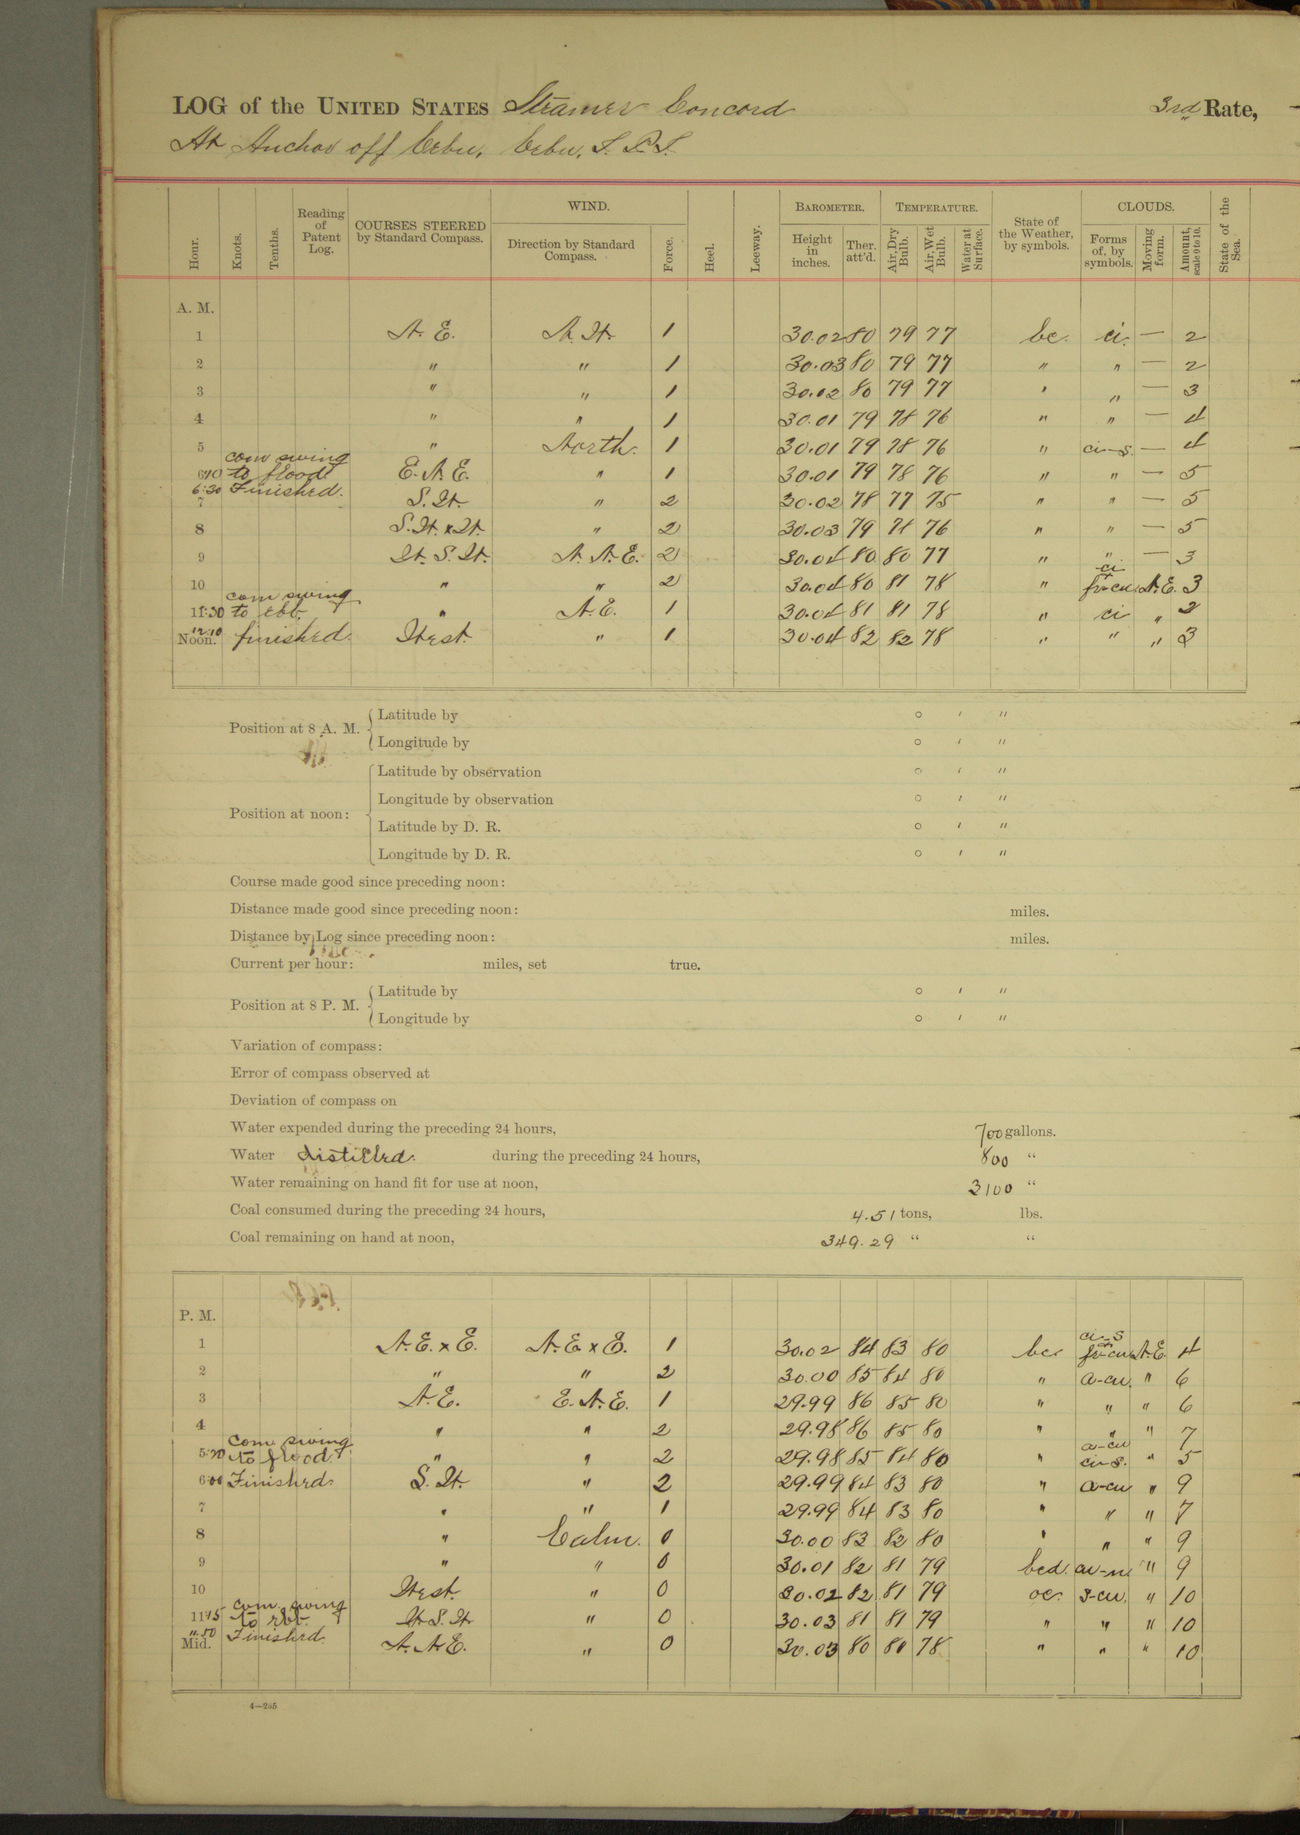 LOG of the UNITED STATES Steamer Concord 3rd Rate,
At Anchor off Cebu, Cebu, S. P. I.
Hour. Knots. Tenths. Reading of Patent Log. COURSES STEERED by Standard Compass. WIND. Direction by Standard Compass. Force. Heel. Leeway. BAROMETER. Height in inches. Ther. att'd. TEMPERATURE. Air, Dry Bulb. Air, Wet Bulb. Water at Surface. State of the Weather, by symbols. CLOUDS. Forms of, by symbols. Moving form. Amount, scale 0 to 10. State of the Sea.
A. M.
1 N. E. N. W. 1 30.02 80 79 77 bc. ci. — 2
2 " " 1 30.03 80 79 77 " " — 2
3 " " 1 30.02 80 79 77 " " — 3
4 " " 1 30.01 79 78 76 " " — 4
5 " North. 1 30.01 79 78 76 " ci-s. — 4
com swing
6:10 to flood E. N. E. " 1 30.01 79 78 76 " " — 5
6:30 Finished.
7 S. W. " 2 30.02 78 77 75 " " — 5
8 S. W. x W. " 2 30.03 79 78 76 " " — 5
9 W. S. W. N. N. E. 2 30.04 80 80 77 " " — 3
10 " " 2 30.04 80 81 78 " ci fr-cu N. E. 3
com swing
11:30 to ebb. " N. E. 1 30.04 81 81 78 " ci " 2
12:10
Noon. finished. West. " 1 30.04 82 82 78 " " " 3
Position at 8 A. M. Latitude by ° ′ ″
Longitude by ° ′ ″
Position at noon: Latitude by observation ° ′ ″
Longitude by observation ° ′ ″
Latitude by D. R. ° ′ ″
Longitude by D. R. ° ′ ″
Course made good since preceding noon:
Distance made good since preceding noon: miles.
Distance by Log since preceding noon: miles.
Current per hour: miles, set true.
Position at 8 P. M. Latitude by ° ′ ″
Longitude by ° ′ ″
Variation of compass:
Error of compass observed at
Deviation of compass on
Water expended during the preceding 24 hours, 700 gallons.
Water distilled. during the preceding 24 hours, 800 "
Water remaining on hand fit for use at noon, 3100 "
Coal consumed during the preceding 24 hours, 4.51 tons, lbs.
Coal remaining on hand at noon, 349.29 " "
P. M.
1 N. E. x E. N. E. x E. 1 30.02 84 83 80 bc. ci-s fr-cu N. E. 4
2 " " 2 30.00 85 84 80 " a-cu. " 6
3 N. E. E. N. E. 1 29.99 86 85 80 " " " 6
4 " " 2 29.98 86 85 80 " " " 7
com. swing
5:20 to flood. " " 2 29.98 85 84 80 " a-cu ci-s. " 5
6:00 Finished. S. W. " 2 29.99 84 83 80 " a-cu " 9
7 " " 1 29.99 84 83 80 " " " 7
8 " Calm. 0 30.00 83 82 80 " " " 9
9 " " 0 30.01 82 81 79 bcd. cu-n. " 9
10 West. " 0 30.02 82 81 79 oc. s-cu. " 10
com. swing
11:15 to ebb. W. S. W. " 0 30.03 81 81 79 " " " 10
11:50 Finished.
Mid. N. N. E. " 0 30.03 80 80 78 " " " 10
4—255